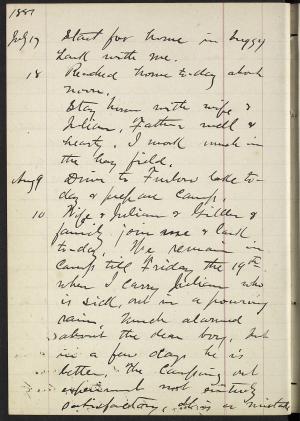 1887
July 17 Start for home in buggy
Hank with me.
18 Reached home to-day about
noon.
Stay home with wife &
Julian, Father well &
hearty. I work much in
the hay field.
Aug 9 Drive to Furlow lake to-
day & prepare camp.
10 Wife & Julian & Gilder &
family join me & Hank
to-day. We remain in
camp till Friday the 19th
when I carry Julian who
is sick, out in a pouring
rain. Much alarmed
about the dear boy, but
in a few days he is
better. The camping out
experiment not entirely
satisfactory, is a mistake